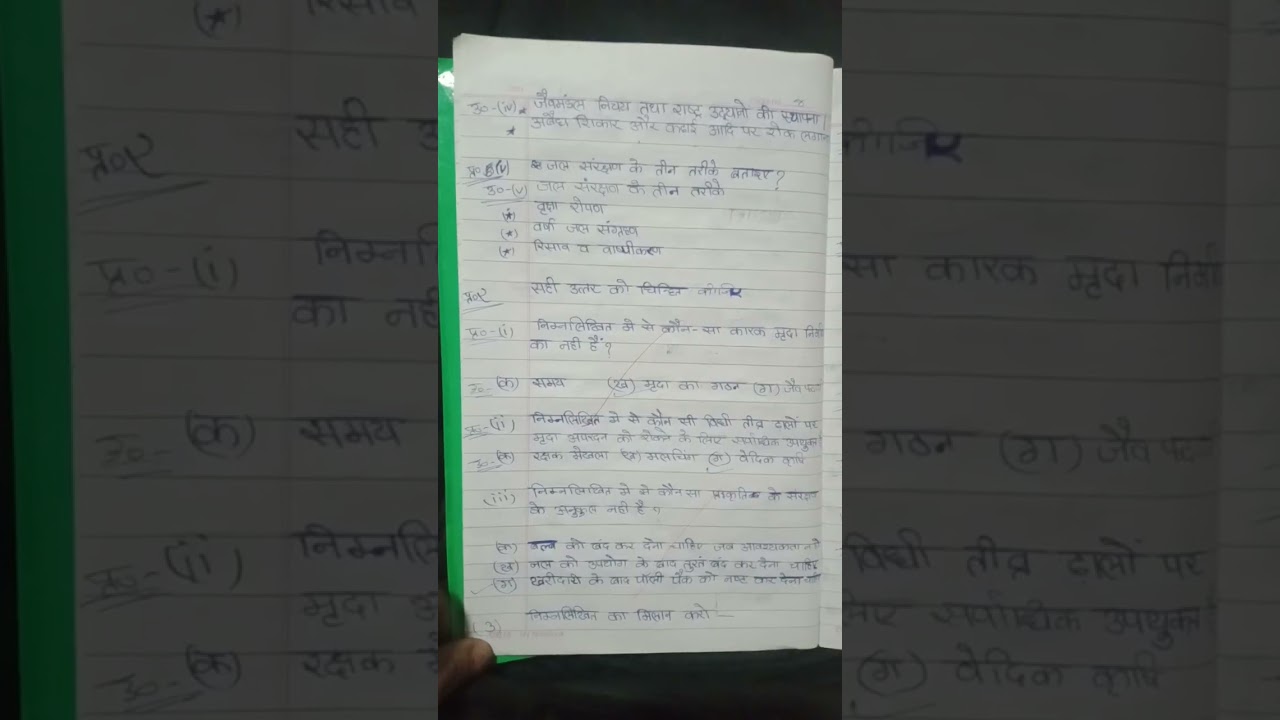 उ०-(iv)* जैवमंडल निचय तथा राष्ट्र उद्यानो की स्थापना
* अवैध शिकार और कटाई आदि पर रोक लगाना
प्र०(v) जल संरक्षण के तीन तरीके बताइए?
उ०-(v) जल संरक्षण के तीन तरीके
(*) वृक्षा रोपण
(*) वर्षा जल संग्रहण
(*) रिसाव व वाष्पीकरण
प्र०२ सही उत्तर को चिन्हित कीजिए
प्र०-(i) निम्नलिखित में से कौन-सा कारक मृदा निर्मा
का नही हैं?
उ०-(क) समय (ख) मृदा का गठन (ग) जैव पदा
प्र०-(ii) निम्नलिखित में से कौन सी विधी तीव्र ढालों पर
मृदा अपरदन को रोकने के लिए सर्वाधिक उपयुक्त
उ०-(क) रक्षक मेखला (ख) मलचिंग (ग) वेदिक कृषि
(iii) निम्नलिखित में से कौन सा प्राकृतिक के संरक्षण
के अनुकूल नही है?
(क) बल्ब को बंद कर देना चाहिए जब आवश्यकता न हो
(ख) नल को उपयोग के बाद तुरंत बंद कर देना चाहिए
(ग) खरीदारी के बाद पॉली पैक को नष्ट कर देना
(3) निम्नलिखित का मिलान करो —